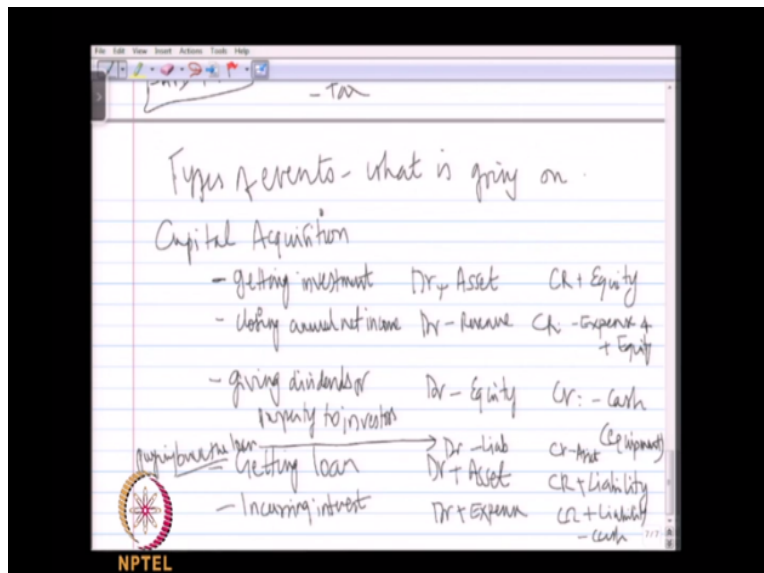 File Edit View Insert Actions Tools Help
- Tax
Types of events - what is going on.
Capital Acquisition
- getting investment Dr + Asset CR + Equity
- closing annual net income Dr - Revenue CR - Expense &
+ Equity
- giving dividends or Dr - Equity Cr: - Cash
property to investors (Equipment)
paying back the loan → Dr - Liab Cr - Asset
- Getting loan Dr + Asset CR + Liability
- Incurring interest Dr + Expense CR + Liability
- cash
7/7
NPTEL